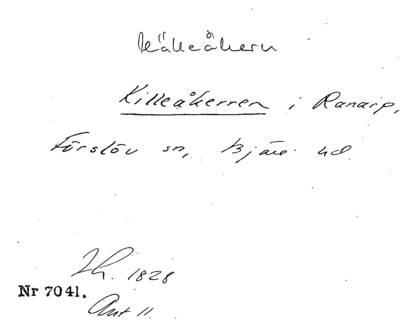 Källeåkern
Killeåkerren i Ranarp,
Förslöv sn, Bjäre hd
Lh. 1828
Nr 7041.
Akt 11.